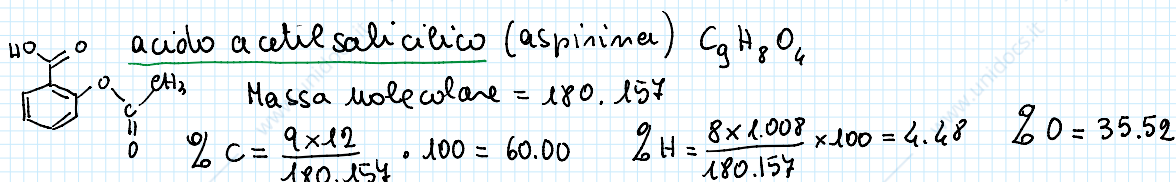 HO O acido acetilsalicilico (aspirina) C9H8O4
O CH3 Massa molecolare = 180.157
C
O % C = 9 x 12 / 180.157 · 100 = 60.00 % H = 8 x 1.008 / 180.157 x 100 = 4.48 % O = 35.52
www.unidocs.it